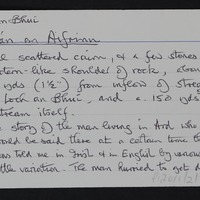 n Bhuí
án an Aifrinn
l scattered cairn, & a few stones
tern-like shoulder of rock, abou
yds (1½") from inflow of strea
Loch an Bhuí, and c. 150 yds
tream itself.
story of the man living in Ard who
ould be said there at a certain time th
as told me in Irish & in English by vario
ttle variation. The man hurried to get d